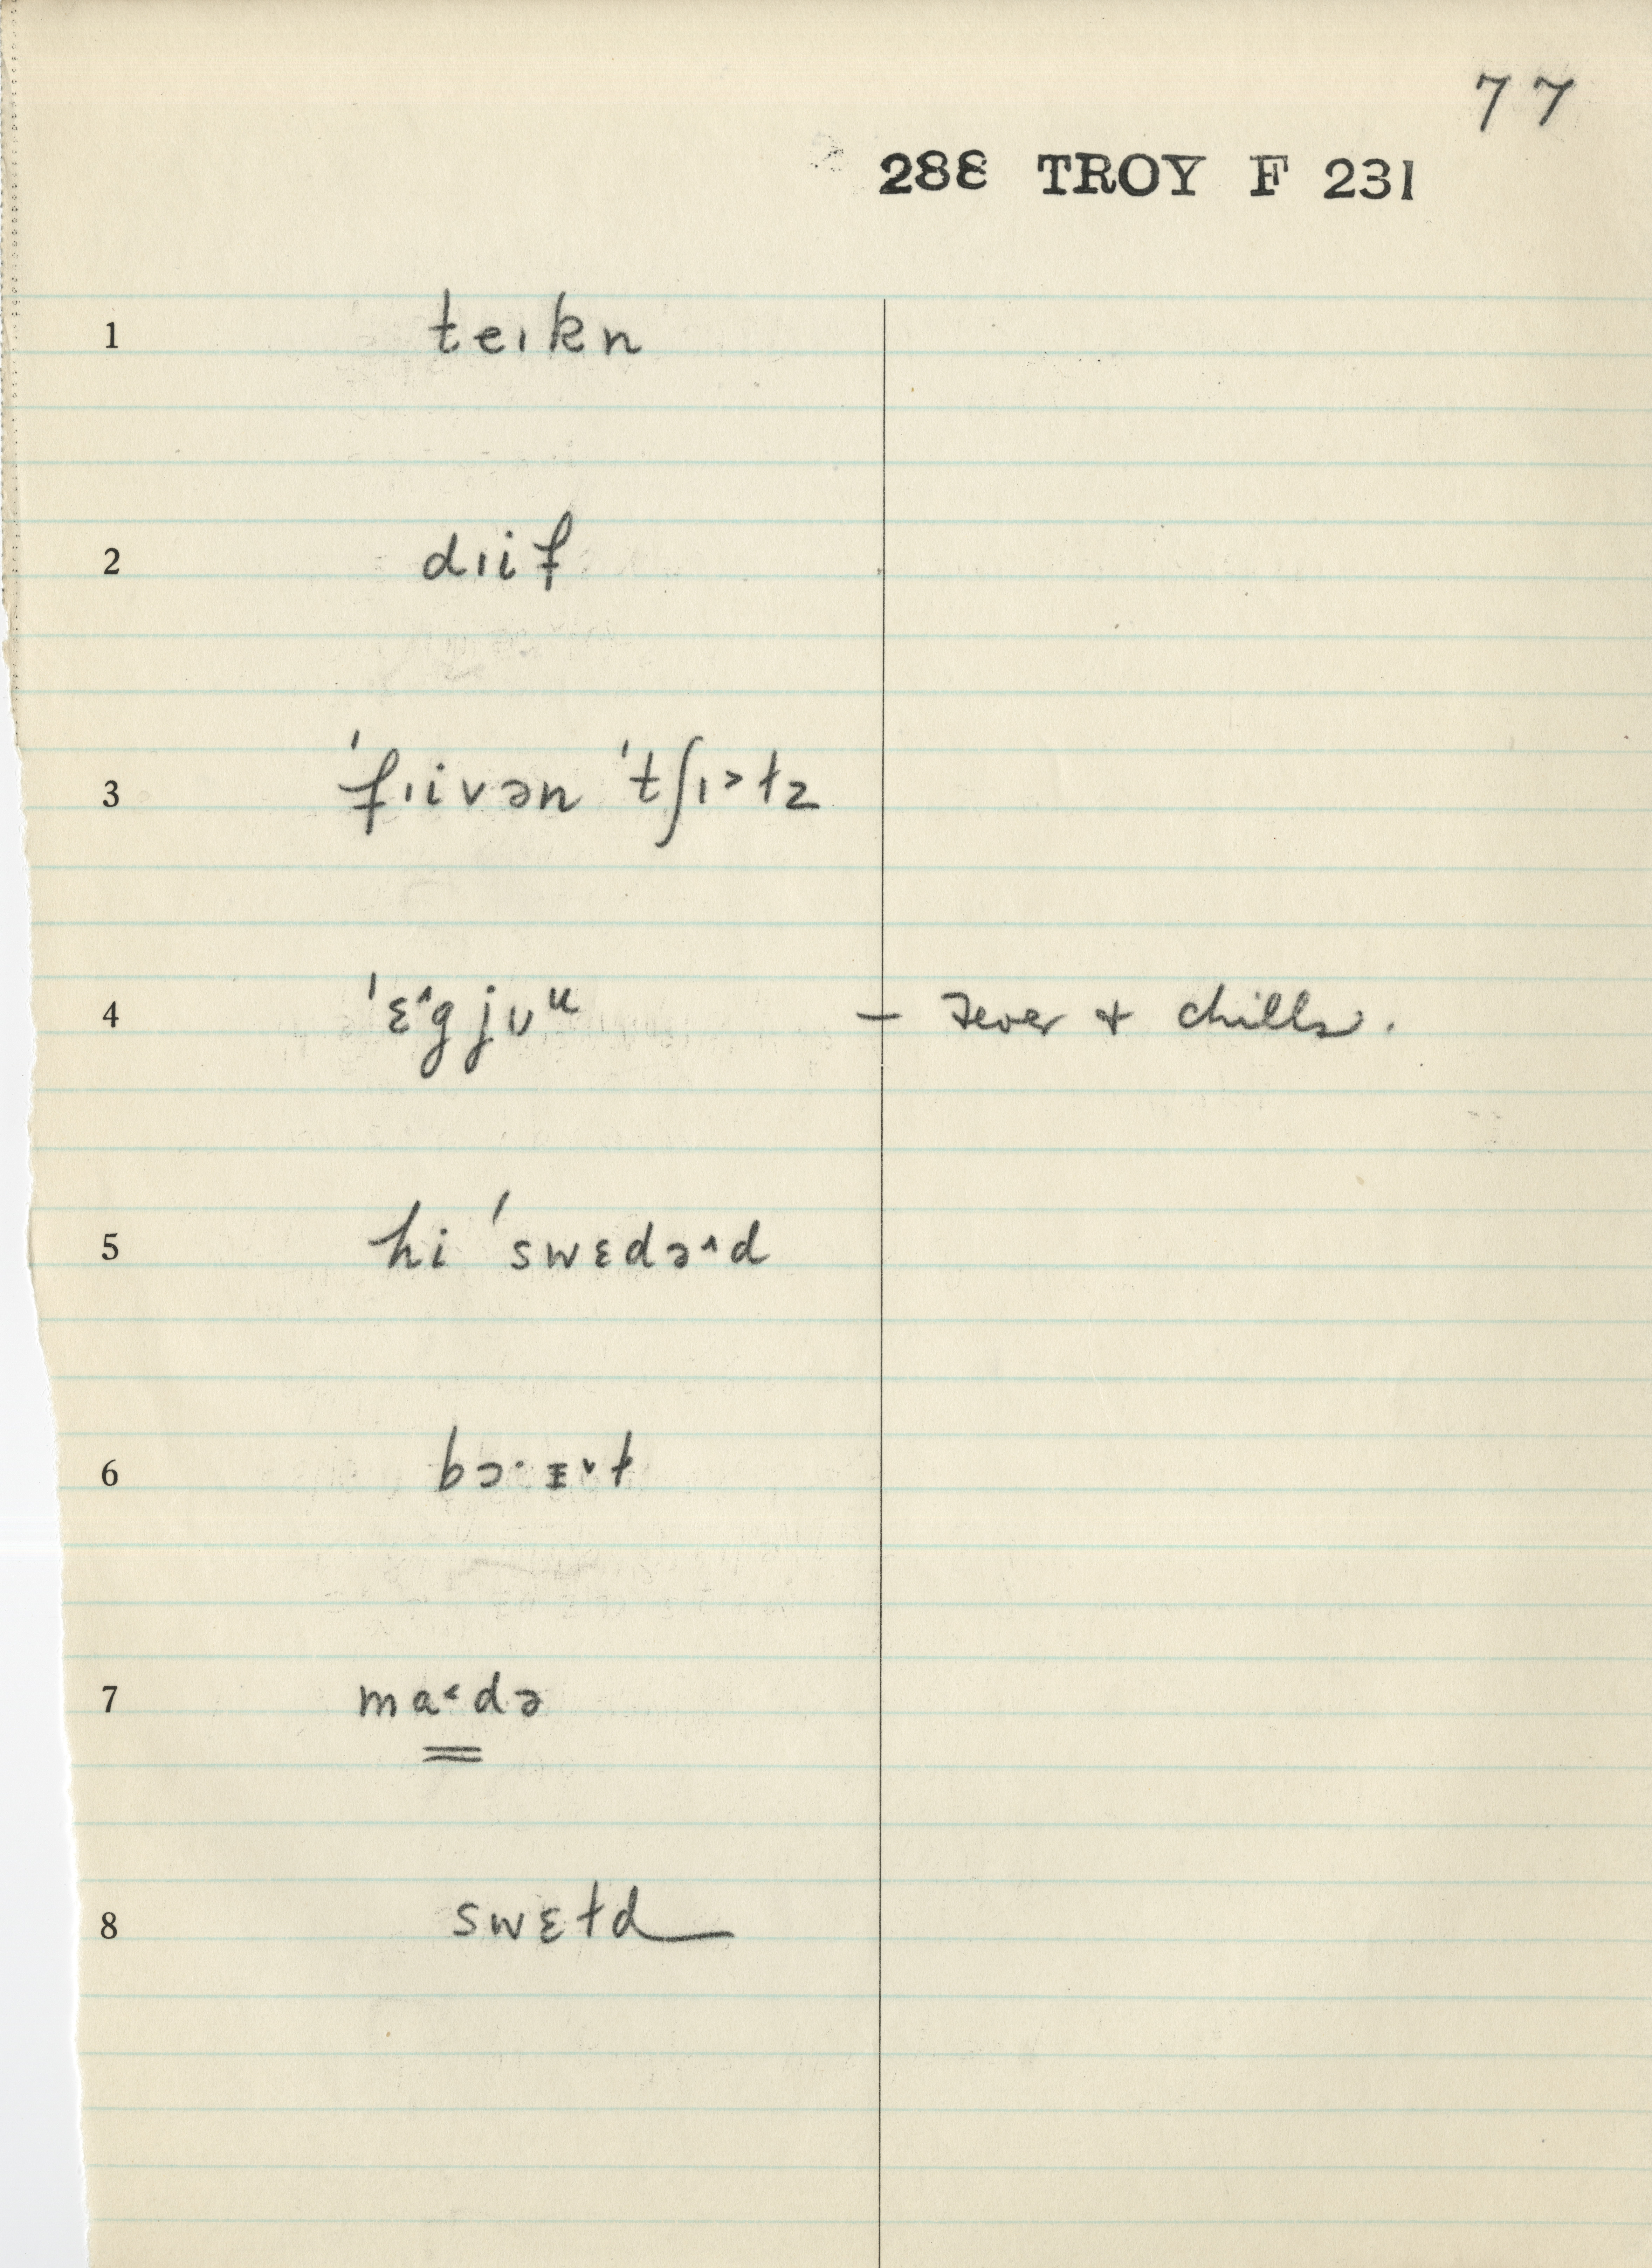 77
288 TROY F 231
1 teɪkn
2 dɪif
3 ˈfɪivən ˈtʃɪ˃ɫz
4 ˈɛ˄gjᴜᵘ – Fever + chills.
5 hi ˈswɛdə˄d
6 bɔ·ᵻ˅ɫ
7 ma˂də
8 swɛɫd